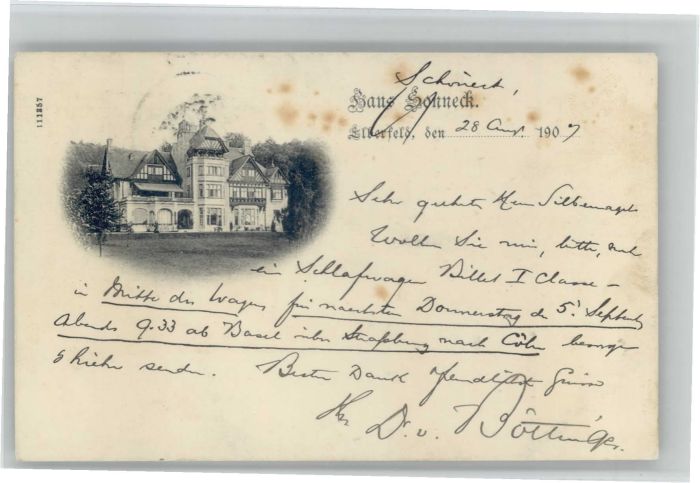 111857
Schöneck,
Haus Sonneck.
Elberfeld, den 28 Aug. 1907
Sehr geehrter Herr Silbernagel
Wollen Sie mir, bitte,
ein Schlafwagen Billet I Classe –
in Mitte des Wagens für nächsten Donnerstag d 5' Septbr
Abends 9.33 ab Basel über Strassburg nach Cöln besorgen
& hierher senden. Besten Dank freundlichste Grüsse
Ihr Dr. v. Böttinger.